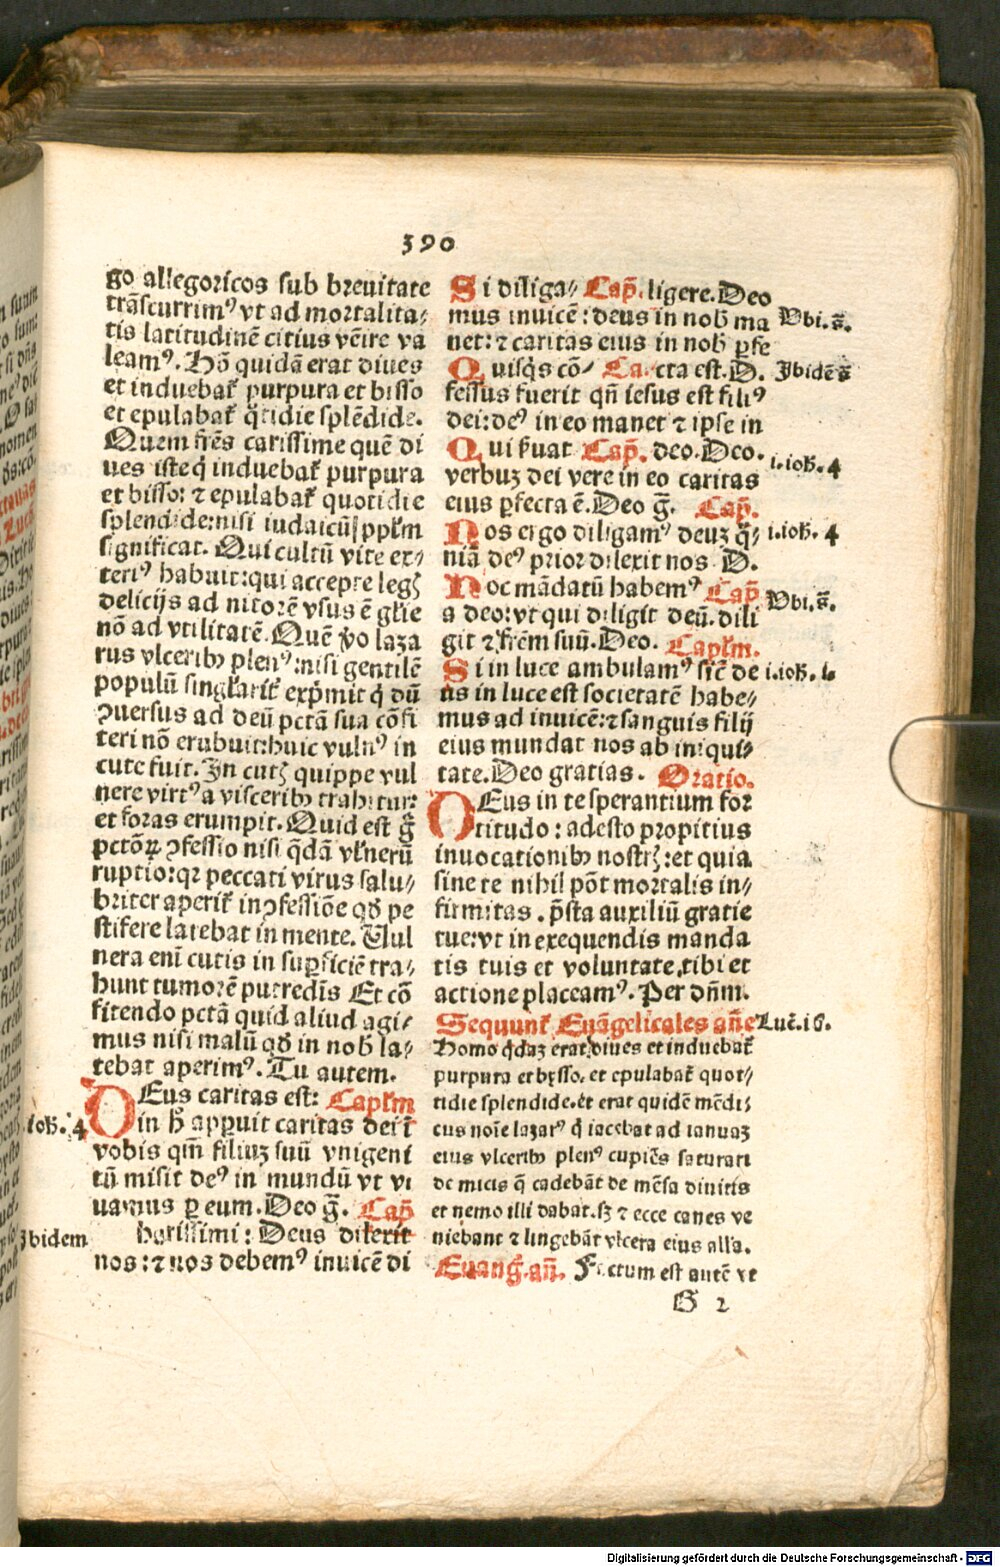 390
go allegoricos sub breuitate
trãscurrimꝰ vt ad mortalita⸗
tis latitudinẽ citius vẽire va
leamꝰ. Hõ quidã erat diues
et induebat᷑ purpura et bisso
et epulabat᷑ q̃tidie splẽdide.
Quem frẽs carissime quẽ di
ues iste q̇ induebat᷑ purpura
et bisso: ⁊ epulabat᷑ quotidie
splendide: nisi iudaicũ pp̄l'm
significat. Qui cultũ vite ex⸗
teriꝰ habuit: qui accepte legꝭ
delicijs ad nitorẽ vsus ẽ gl'ie
nõ ad vtilitatẽ. Quẽ ꝟo laza
rus vlceribꝫ plenꝰ: nisi gentilẽ
populũ singl'arit᷑ exp̃mit q̇ dũ
ꝯuersus ad deũ pctã sua cõfi
teri nõ erubuit: huic vulnꝰ in
cute fuit. In cutꝭ quippe vul
nere virꝰ a visceribꝫ trahitur:
et foras erumpit. Quid est g̃
pctõꝝ ꝯfessio nisi q̇dã vl'nerũ
ruptio: qꝛ peccati virus salu⸗
briter aperit᷑ in ꝯfessiõe qđ pe
stifere latebat in mente. Uul
nera eni᷑ cutis in suꝑficiẽ tra⸗
hunt tumorẽ putredĩs Et cõ
fitendo pctã quid aliud agi⸗
mus nisi malũ qđ in nobꝭ la⸗
tebat aperimꝰ. Tu autem.
DEus caritas est: Capl'm
in h̃ apꝑuit caritas dei ĩ
ioħ. 4
vobis qm̃ filiuꝫ suũ vnigeni
tũ misit deꝰ in mundũ vt vi
uamus ꝑ eum. Deo g̃. Cap̃
harissimi: Deus dilexit
Ibidem
nos: ⁊ nos debemꝰ inuicẽ di
Si diliga⸗ Cap̃. ligere. Deo
mus inuicẽ: deus in nobꝭ ma
Vbi. s̃.
net: ⁊ caritas eius in nobꝭ ꝑfe
Quisq̇s cõ⸗ Ca. cta est. D.
Ibidẽ s̃
fessus fuerit qñ iesus est filiꝰ
dei: deꝰ in eo manet ⁊ ipse in
Qui ẜuat Cap̃. deo. Deo.
i. ioħ. 4
verbuꝫ dei vere in eo caritas
eius ꝑfecta ẽ. Deo g̃. Cap̃.
Nos ergo diligamꝰ deuꝫ q̃⸗
i. ioħ. 4
niã deꝰ prior dilexit nos D.
Hoc mãdatũ habemꝰ Cap̃
Vbi. s̃.
a deo: vt qui diligit deũ. dili
git ⁊ fr̃em suũ. Deo. Capl'm.
Si in luce ambulamꝰ sic̃ de
i. ioħ. i.
us in luce est societatẽ habe⸗
mus ad inuicẽ: ⁊ sanguis filij
eius mundat nos ab iniqui⸗
tate. Deo gratias. Oratio.
DEus in te sperantium for
titudo: adesto propitius
inuocationibꝫ nostrꝭ: et quia
sine te nihil põt mortalis in⸗
firmitas. p̃sta auxiliũ gratie
tue: vt in exequendis manda
tis tuis et voluntate tibi et
actione placeamꝰ. Per dñm.
Sequunt᷑ Euãgelicales añe
Luc̃. i6.
Homo q̇daꝫ erat diues et induebat᷑
purpura et bysso. et epulabat᷑ quot⸗
tidie splendide. et erat quidẽ mẽdi⸗
cus noĩe lazarꝰ q̇ iacebat ad ianuaꝫ
eius vlceribꝫ plenꝰ cupiẽs saturari
de micis q̃ cadebãt de mẽsa diuitis
et nemo illi dabat. sꝫ ⁊ ecce canes ve
niebant ⁊ lingebãt vlcera eius all'a.
Euang̃. añ. Factum est autẽ vt
G 2
Digitalisierung gefördert durch die Deutsche Forschungsgemeinschaft - DFG